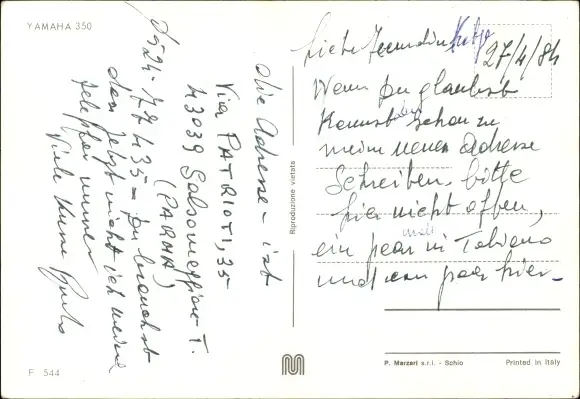 YAMAHA 350
27/4/84
Liebe Freundin
Wenn Du glaubst
kannst schon zu
mein neuen Adresse
Schreiben, bitte
hier nicht offen,
ein paar in Tabiano
und ein paar hier -
Die Adresse - ist
Via PATRIOTI, 35
43039 Salsomaggiore T.
(PARMA)
0524-77435 = Du brauchst
den jetzt nicht ich meine
telephon nummer
Viele Küsse
Riproduzione vietata
F 544
P. Marzari s.r.l. - Schio
Printed in Italy